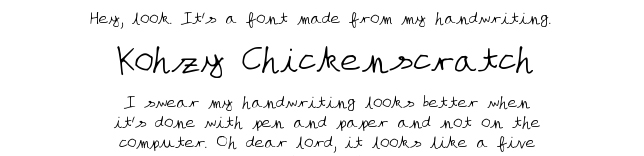 Hey, look. It's a font made from my handwriting.
Kohzy Chickenscratch
I swear my handwriting looks better when
it's done with pen and paper and not on the
computer. Oh dear lord, it looks like a five